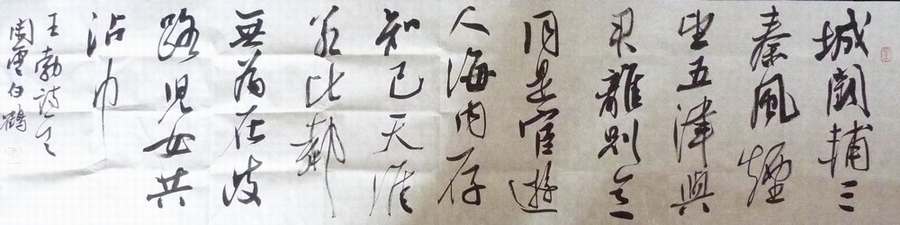 城闕輔三
秦風煙
望五津與
君離別意
同是宦遊
人海内存
知己天涯
若比鄰
無爲在歧
路兒女共
沾巾
王勃詩
雲白鶴